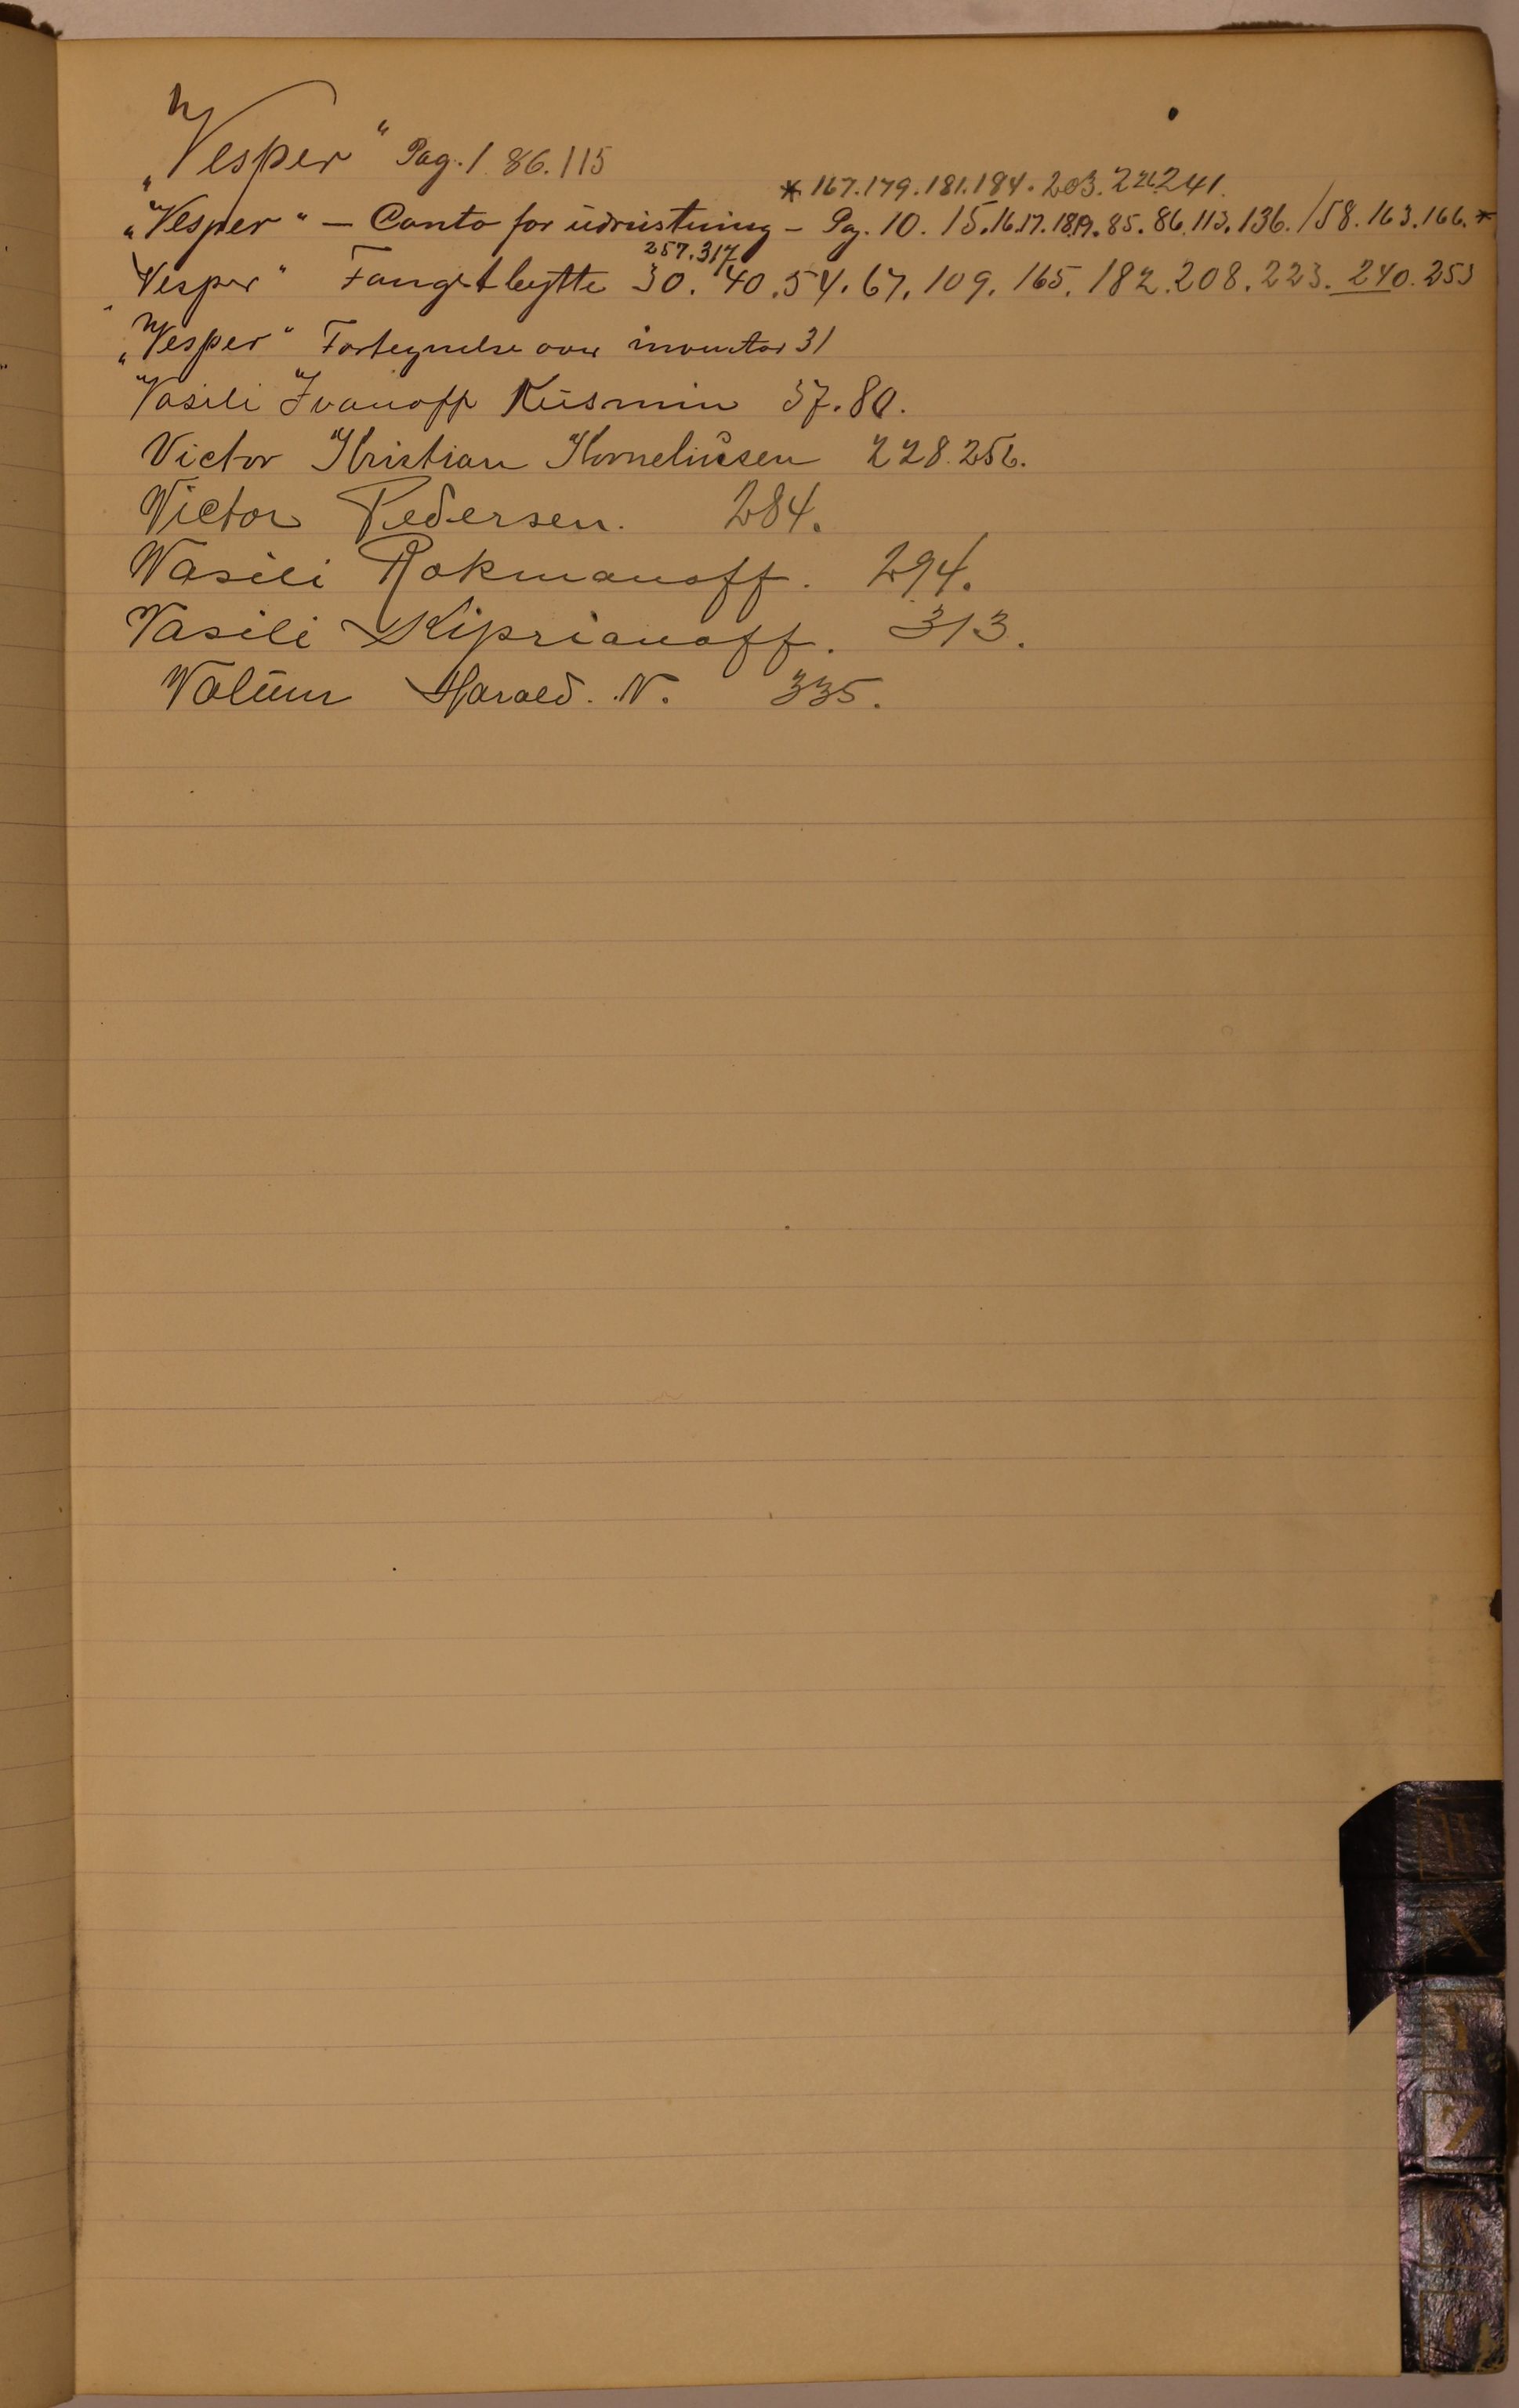 „Vesper“ Pag. 1 86. 115
* 167. 179. 181. 184. 203. 221. 241.
„Vesper“ – Conto for üdrüstning – Pag. 10. 15. 16. 17. 18. 19. 85. 86. 113. 136. 158. 163. 166. *
257. 317
„Vesper“ Fangstbytte 30. 40. 54. 67. 109. 165. 182. 208. 223. 240. 253
„Vesper“ Fortegnelse over inventar 31
Vasili Ivanoff Küsmin 37. 80.
Victor Kristian Korneliüsen 228. 256.
Victor Pedersen. 284.
Wasili Rokmanoff. 294.
Vasili Kiprianoff. 313.
Walüm Harald. N. 335.
X
Y
Z